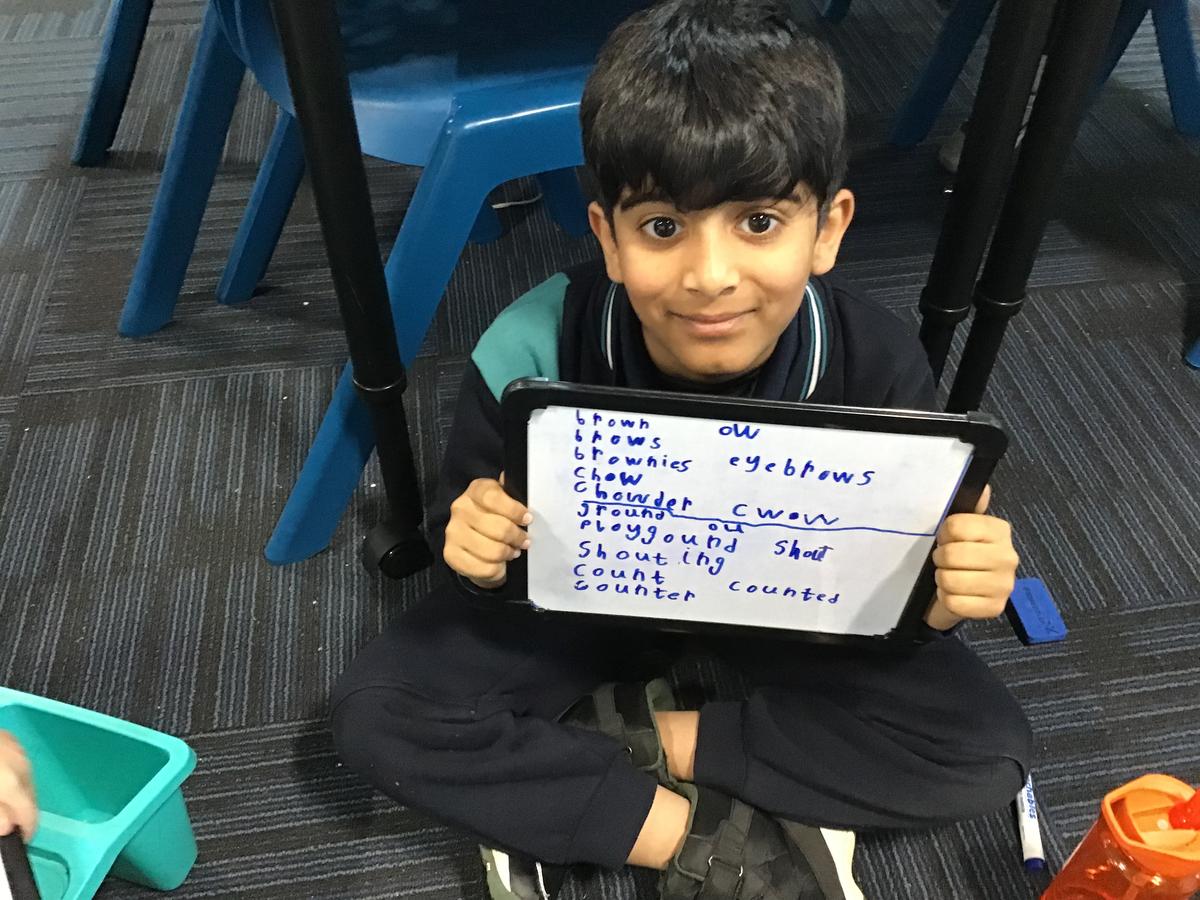 brown ow
brows
brownies eyebrows
chow
chowder cwow
ground ou
ployground shout
shouting
count counted
counter